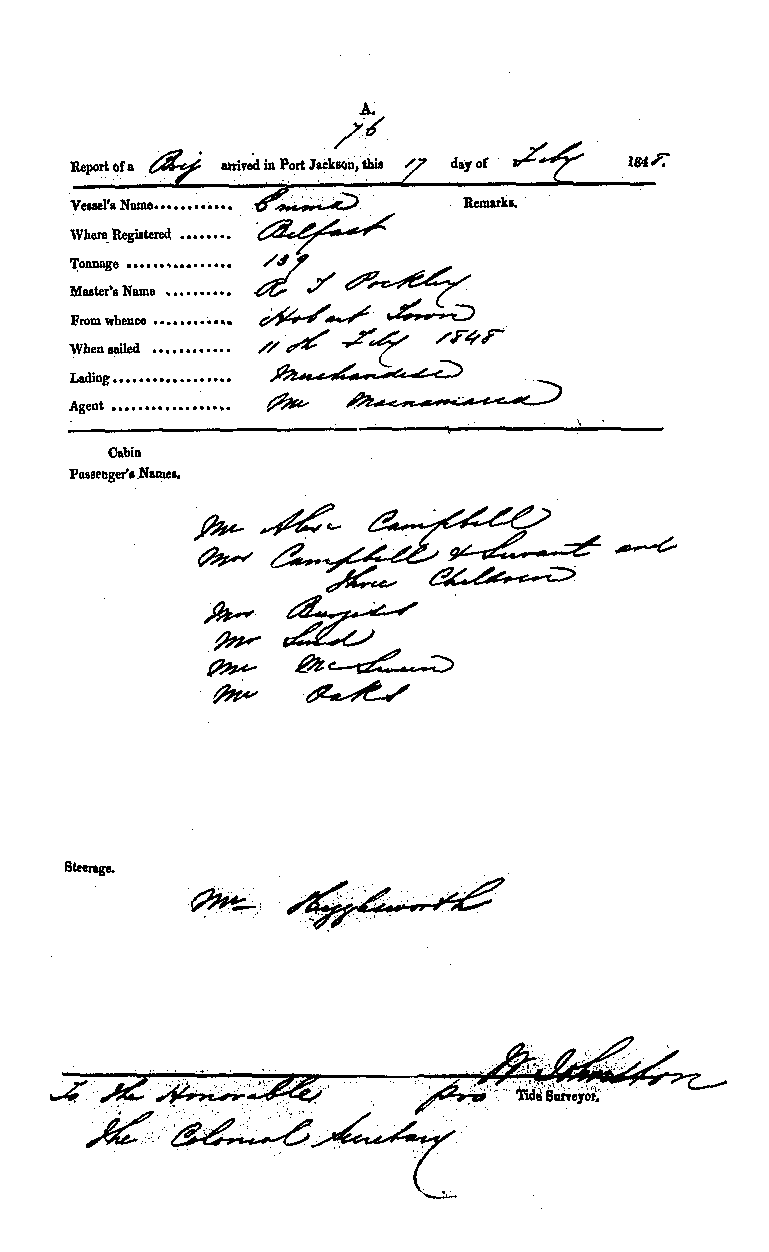 A.
76
Report of a Brig arrived in Port Jackson, this 17 day of Feby 1848.
Vessel's Name............ Emma Remarks.
Where Registered ........ Belfast
Tonnage ................ 139
Master's Name .......... R T Pockley
From whence ............ Hobart Town
When sailed ............ 11th Feby 1848
Lading.................. Merchandise
Agent .................. Mr Macnamara
Cabin
Passenger's Names.
Mr Alexr Campbell
Mrs Campbell & Servant and
three Children
Mrs Burgess
Mr
Mr McSwain
Mr Oaks
Steerage.
Mr Hygglesworth
W Johnston
To The Honorable pro Tide Surveyor.
The Colonial Secretary